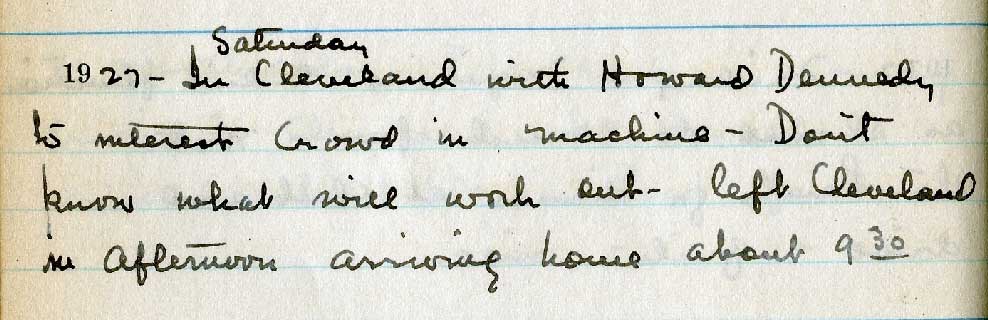 Saturday
1927 - In Cleveland with Howard Dennedy
to interest Crowd in machine - Don't
know what will work out - left Cleveland
in afternoon arriving home about 9 30